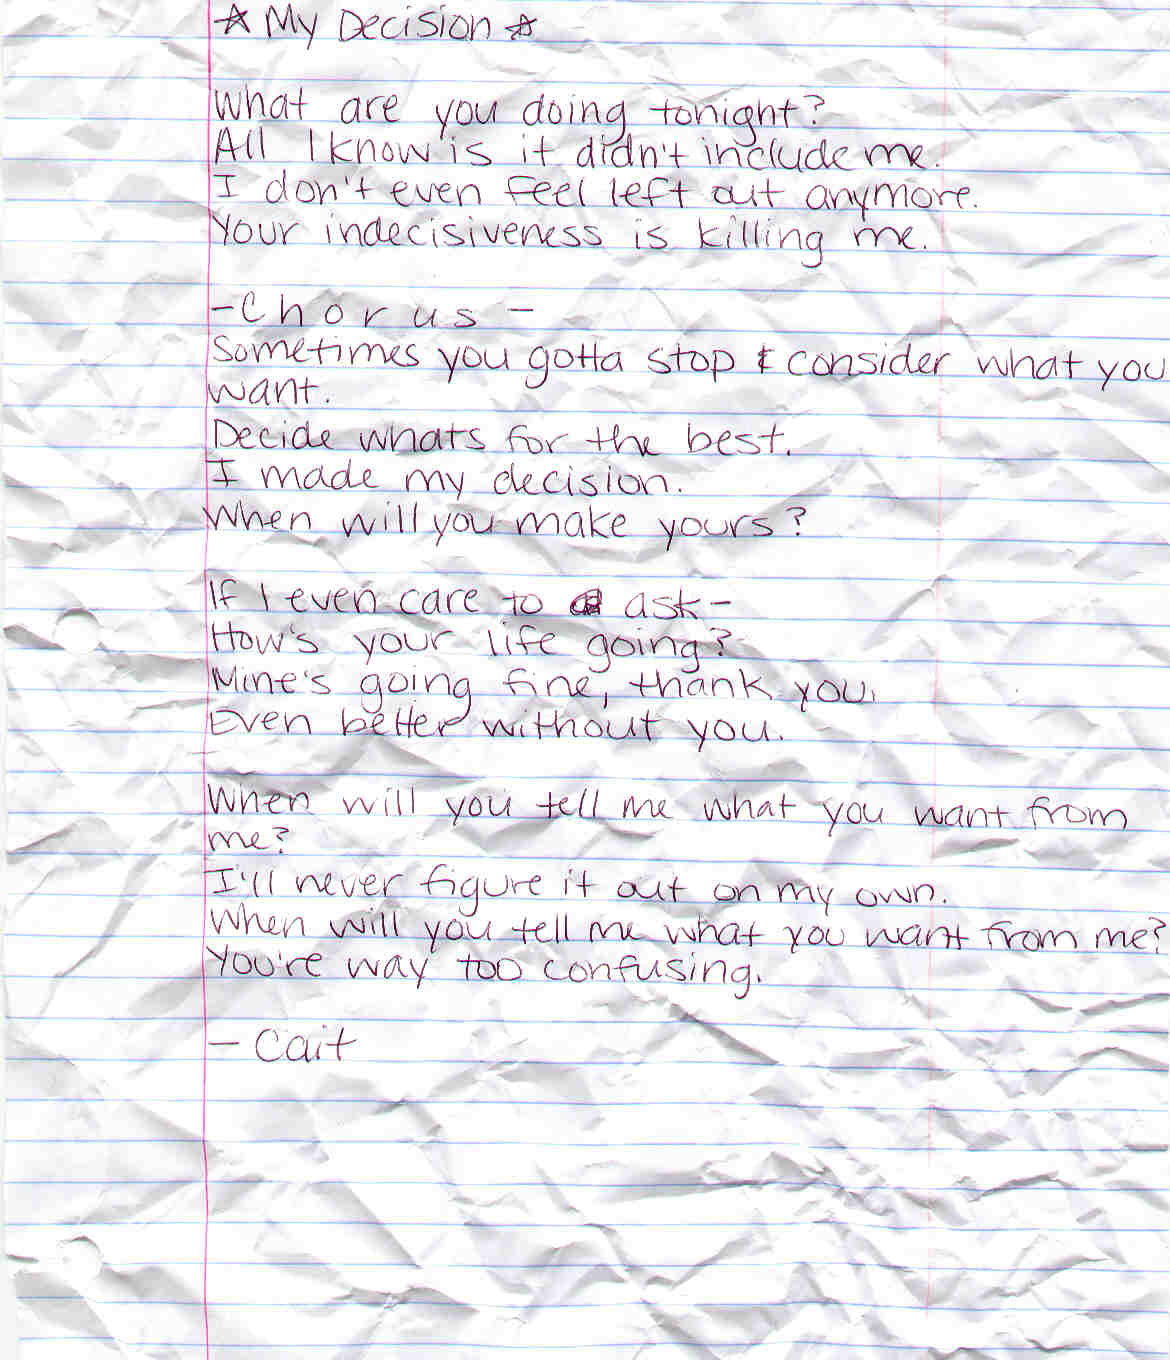 ☆ My Decision ☆
What are you doing tonight?
All I know is it didn't include me.
I don't even feel left out anymore.
Your indecisiveness is killing me.
- Chorus -
Sometimes you gotta stop & consider what you
want.
Decide whats for the best.
I made my decision.
When will you make yours?
If I even care to ask-
How's your life going?
Mine's going fine, thank you.
Even better without you.
When will you tell me what you want from
me?
I'll never figure it out on my own.
When will you tell me what you want from me?
You're way too confusing.
- Cait